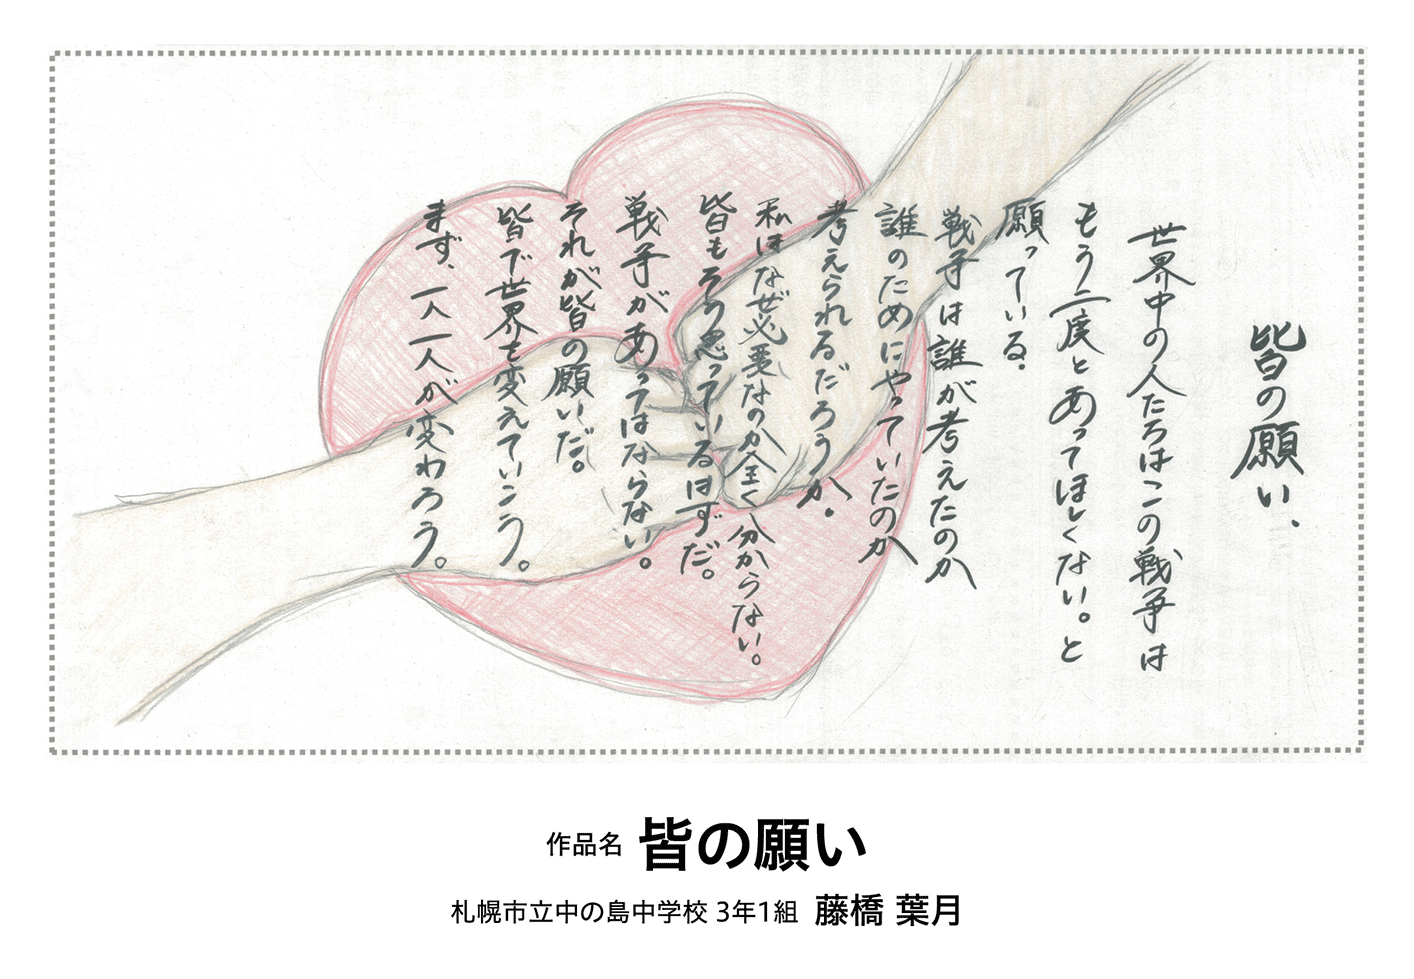 皆の願い、
世界中の人たちはこの戦争は
もう一度とあってほしくない。と
願っている。
戦争は誰が考えたのか
誰のためにやっていたのか
考えられるだろうか。
私はなぜ必要なのか全く分からない。
皆もそう思っているはずだ。
戦争があってはならない。
それが皆の願いだ。
皆で世界を変えていこう。
まず、一人一人が変わろう。
作品名 皆の願い
札幌市立中の島中学校 3年1組 藤橋 葉月